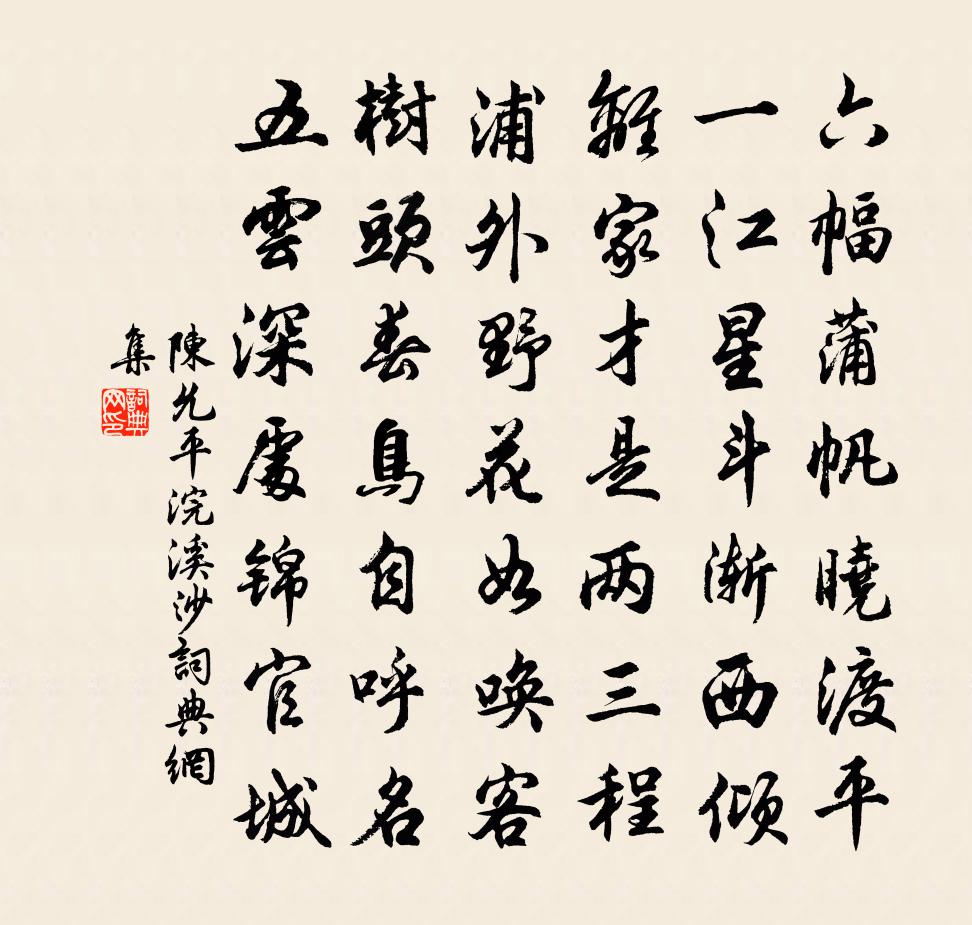 六幅蒲帆曉渡平
一江星斗漸西傾
離家才是兩三程
浦外野花如喚客
樹頭春鳥自呼名
五雲深處錦官城
陳允平浣溪沙詞典網
集
詞典
网印